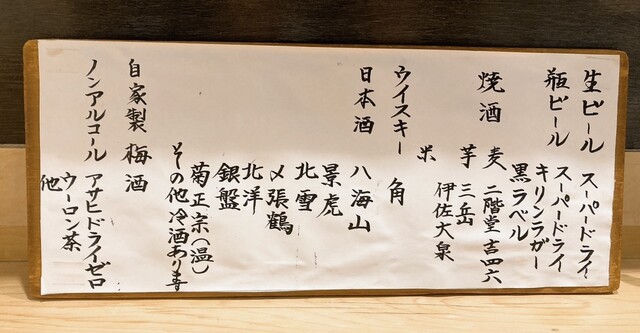 生ビール スーパードライ
瓶ビール スーパードライ
キリンラガー
黒ラベル
焼酒 麦 二階堂 吉四六
芋 三岳
伊佐大泉
米
ウイスキー 角
日本酒 八海山
景虎
北雪
〆張鶴
北洋
銀盤
菊正宗(温)
その他冷酒あり〼
自家製 梅酒
ノンアルコール アサヒドライゼロ
ウーロン茶
他